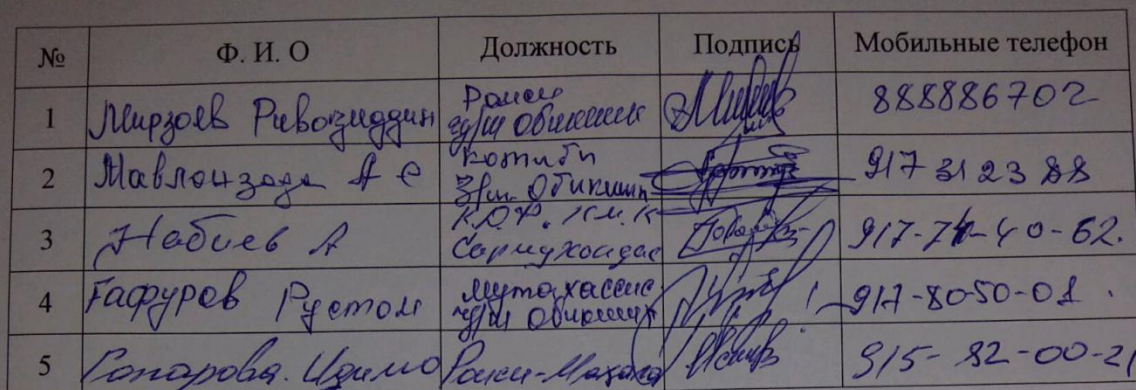 № Ф. И. О Должность Подпись Мобильные телефон
1 Мирзоев Ривозиддин Раиси ҷ/ш Обикиик 888886702
2 Мавлонзода А С котиби ҷ/ш Обикиик 917 31 23 88
3 Набиев А 917-74-40-62.
4 Гафуров Рустам мутахассис ҷ/ш Обикиик 917-80-50-01.
5 Раиси-Маҳала 915-82-00-21